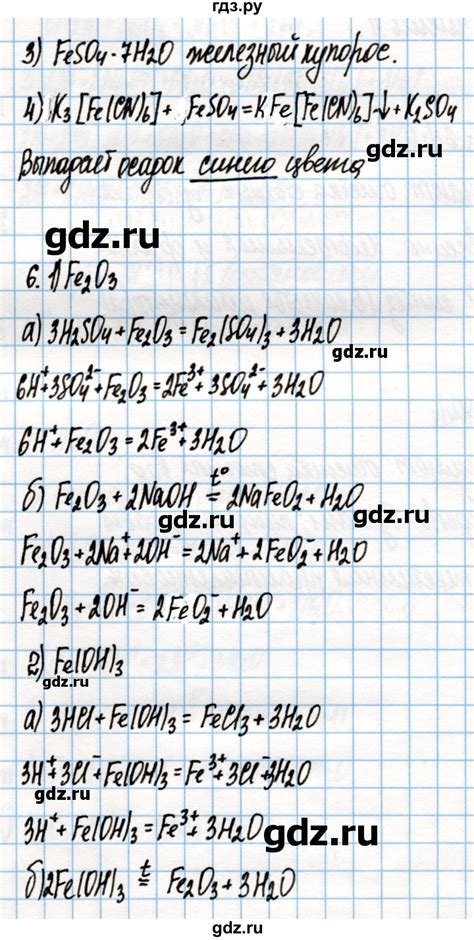 гдз.ру
3) FeSO₄·7H₂O железный купорос.
4) K₃[Fe(CN)₆]+ FeSO₄=KFe[Fe(CN)₆]↓+K₂SO₄
Выпадает осадок синего цвета
gdz.ru
6. 1) Fe₂O₃
gdz.ru
а) 3H₂SO₄+Fe₂O₃=Fe₂(SO₄)₃+3H₂O
gdz.ru
6H⁺+3SO₄²⁻+Fe₂O₃=2Fe³⁺+3SO₄²⁻+3H₂O
6H⁺+Fe₂O₃=2Fe³⁺+3H₂O
gdz.ru
б) Fe₂O₃+2NaOH t° = 2NaFeO₂+H₂O
gdz.ru
Fe₂O₃+2Na⁺+2OH⁻=2Na⁺+2FeO₂⁻+H₂O
Fe₂O₃+2OH⁻=2FeO₂⁻+H₂O
gdz.ru
2) Fe(OH)₃
gdz.ru
а) 3HCl+Fe(OH)₃=FeCl₃+3H₂O
gdz.ru
3H⁺+3Cl⁻+Fe(OH)₃=Fe³⁺+3Cl⁻+3H₂O
3H⁺+Fe(OH)₃=Fe³⁺+3H₂O
gdz.ru
б) 2Fe(OH)₃ t = Fe₂O₃+3H₂O
gdz.ru
gdz.ru